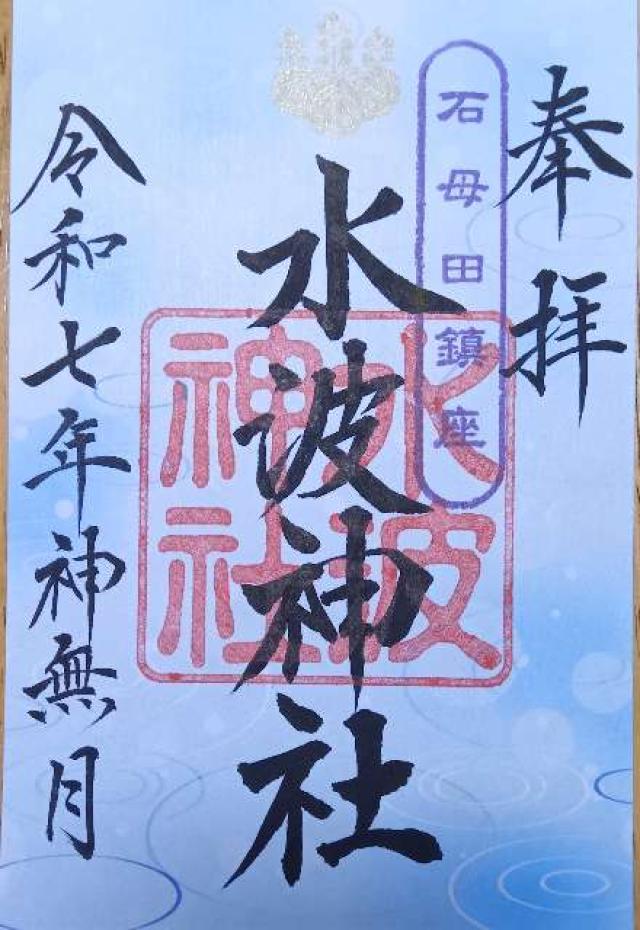 奉拝
石母田鎮座
水波神社
水波神社
令和七年神無月